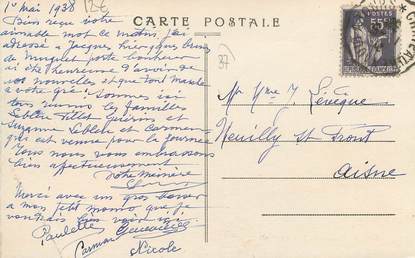 1er Mai 1938
12€
CARTE POSTALE
Bien reçu votre
aimable mot ce matin, j'ai
adressé à Jacques, hier, quelques brins
de muguet porte bonheur
ai été heureuse d'avoir de
vos nouvelles et que tout marche
à votre gré. Sommes ici
tous réunis les familles
Leblère Tillet Guérin et
Suzanne Leblère et Carmen
qui est venue pour la journée
Tous nous vous embrassons
bien affectueusement
Votre
Merci avec un gros baiser
à mon petit momo que je
voudrais bien voir ici.
Paulette
Carmen
Nicole
37
POSTES
55c
Mr Mme J. Lévêque
Neuilly St Front
Aisne